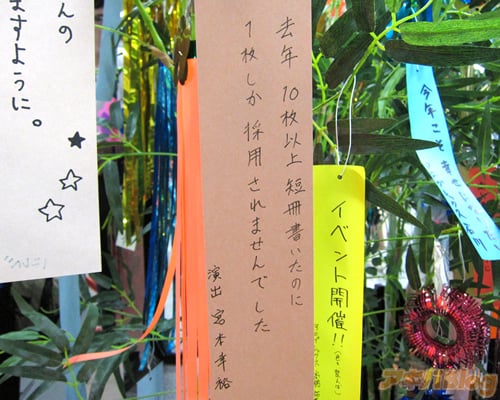 んの
ますように。
去年 10枚以上 短冊書いたのに
1枚しか 採用されませんでした
演出 宮本幸裕
イベント開催!!
今年こそ
アキバBlog